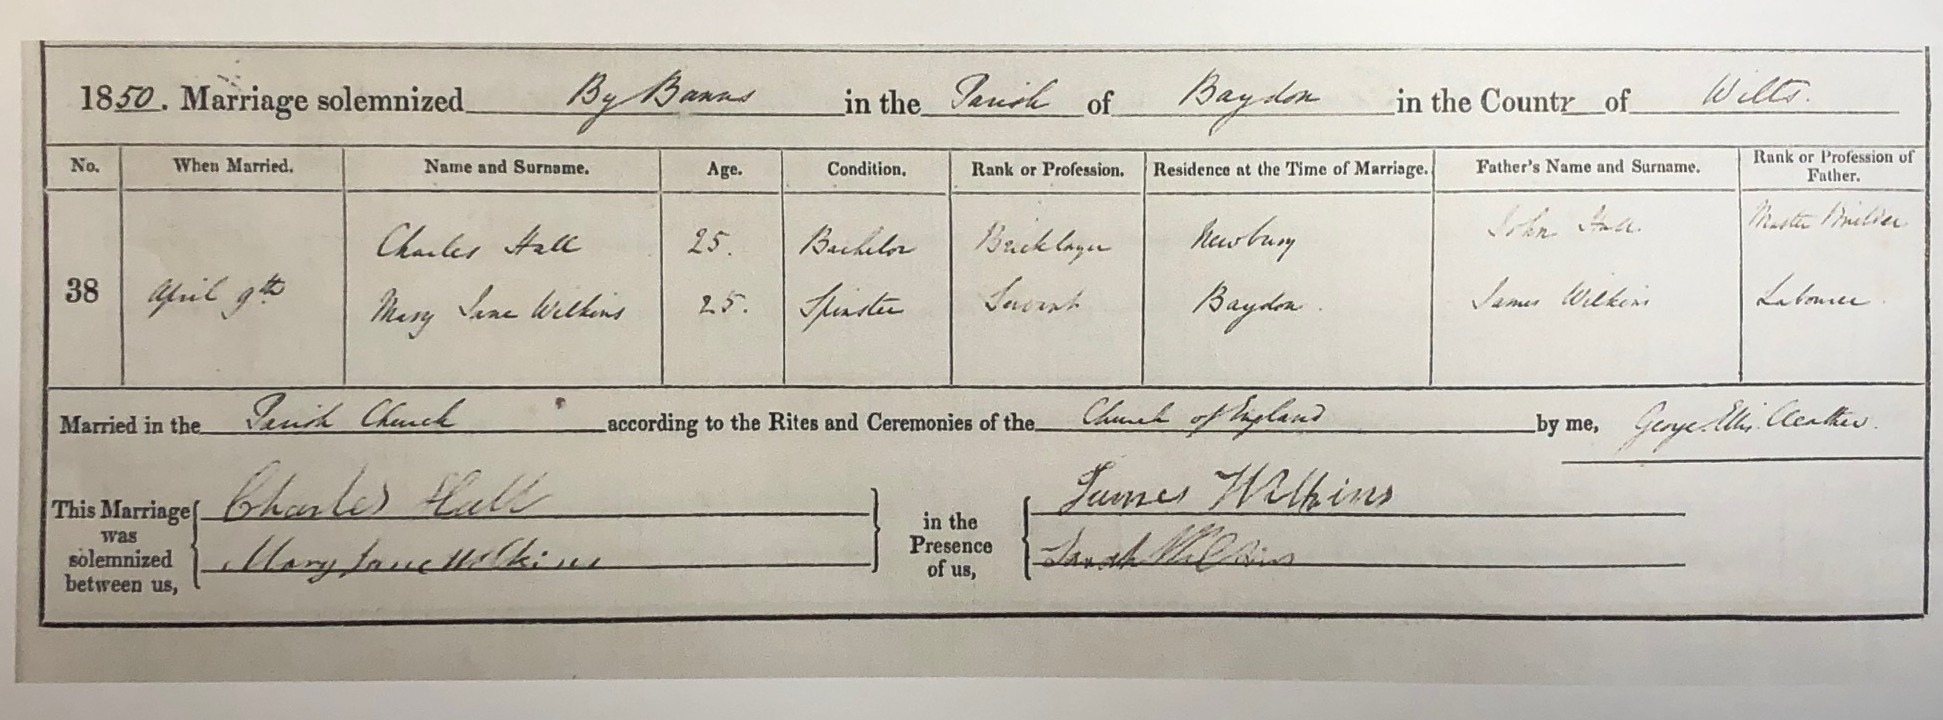 1850. Marriage solemnized By Banns in the Parish of Baydon in the County of Wilts.
No. When Married. Name and Surname. Age. Condition. Rank or Profession. Residence at the Time of Marriage. Father's Name and Surname. Rank or Profession of Father.
38 April 9th
Charles Hall 25. Bachelor Bricklayer Newbury John Hall Master Builder
Mary Jane Wilkins 25. Spinster Servant Baydon. James Wilkins Labourer.
Married in the Parish Church according to the Rites and Ceremonies of the Church of England by me, George Ellis
This Marriage was solemnized between us,
Charles Hall
Mary Jane Wilkins
in the Presence of us,
James Wilkins
Sarah Wilkins